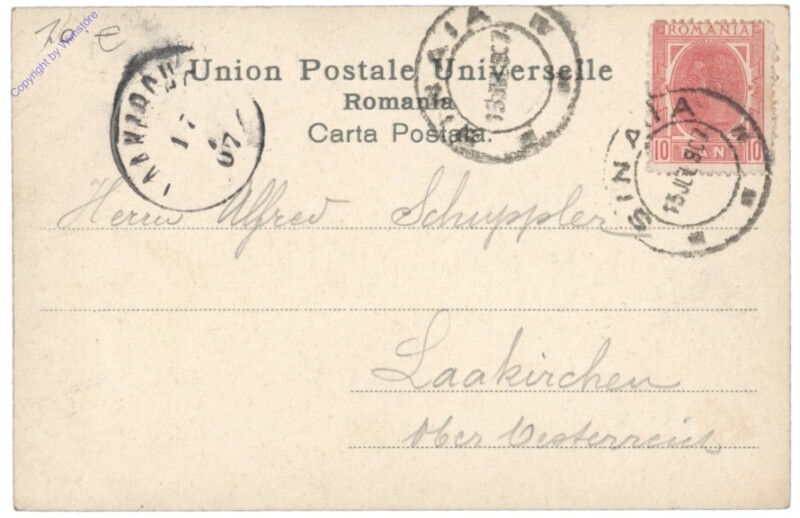 Copyright by Wiinstore
Union Postale Universelle
Romania
Carta Postala.
ROMANIA
10 BANI 10
SINAIA
SINAIA
17
07
Herrn Alfred Schuppler
Laakirchen
Ober Oesterreich